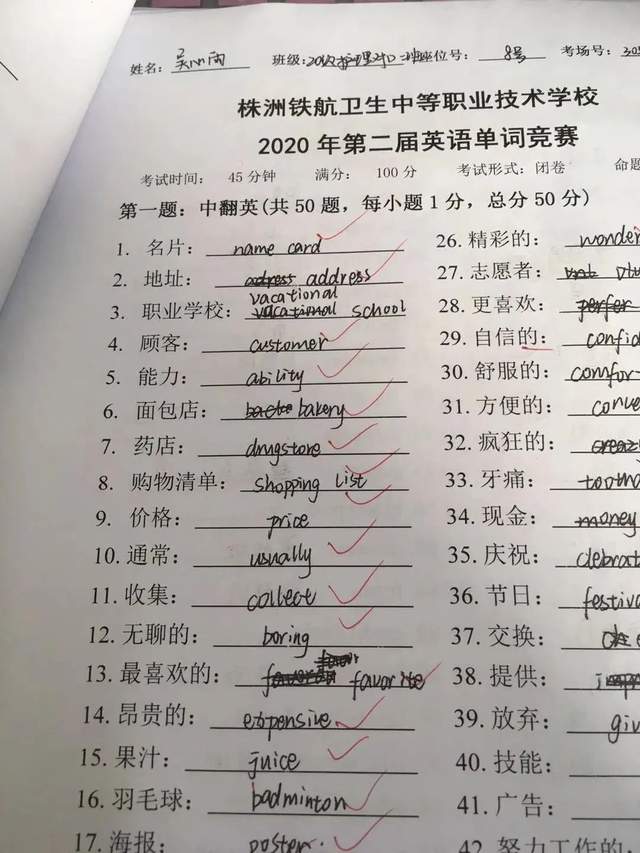 姓名： 班级： 座位号：8号 考场号：
株洲铁航卫生中等职业技术学校
2020年第二届英语单词竞赛
考试时间： 45分钟 满分： 100分 考试形式：闭卷 命题
第一题：中翻英(共50题，每小题1分，总分50分)
1. 名片： name card
2. 地址： address
3. 职业学校： vacational school
4. 顾客： customer
5. 能力： ability
6. 面包店： bakery
7. 药店： drugstore
8. 购物清单： shopping list
9. 价格： price
10. 通常： usually
11. 收集： collect
12. 无聊的： boring
13. 最喜欢的： favorite
14. 昂贵的： expensive
15. 果汁： juice
16. 羽毛球： badminton
17. 海报： poster
26. 精彩的： wonder
27. 志愿者：
28. 更喜欢： perfer
29. 自信的： confid
30. 舒服的： comfor
31. 方便的： conve
32. 疯狂的：
33. 牙痛： tootha
34. 现金： money
35. 庆祝：
36. 节日： festiva
37. 交换：
38. 提供：
39. 放弃： giv
40. 技能：
41. 广告：
42. 努力工作的：